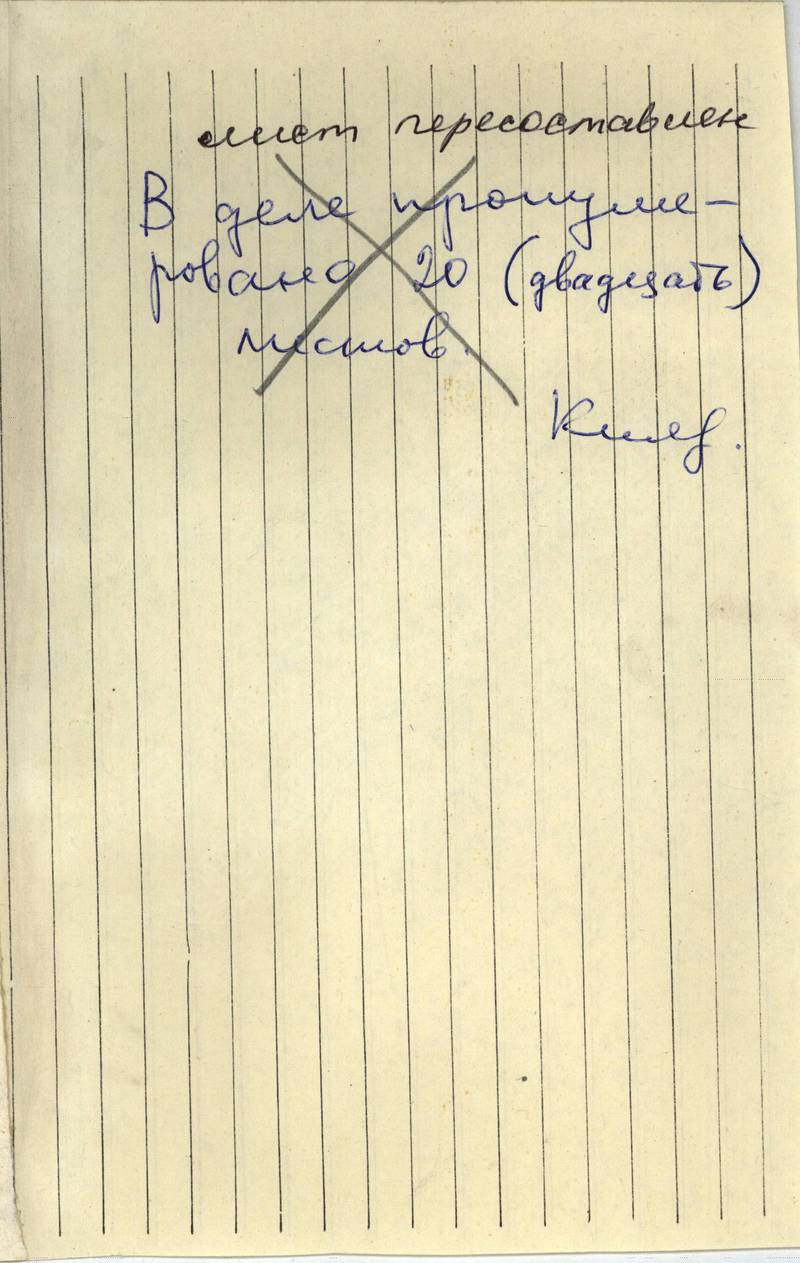 лист пересоставлен
В деле пронуме-
ровано 20 (двадцать)
листов.